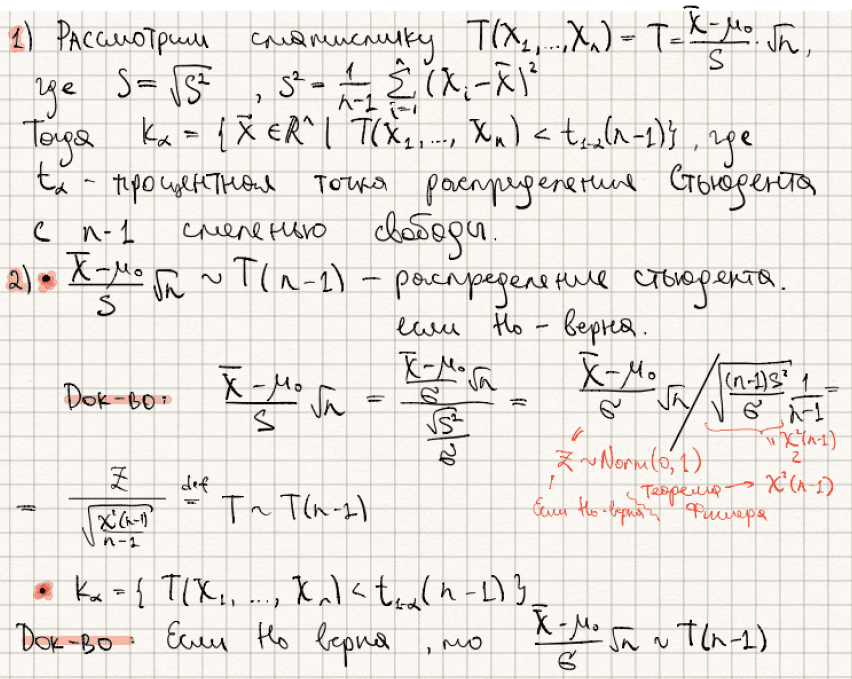 1) Рассмотрим статистику T(X₁,...,Xₙ) = T = (X̄-μ₀)/S · √n,
где S = √S², S² = 1/(n-1) ∑ᵢ₌₁ⁿ (Xᵢ-X̄)²
Тогда Kα = { X⃗ ∈ Rⁿ | T(X₁,..., Xₙ) < t₁₋α(n-1)}, где
tα - процентная точка распределения Стьюдента
с n-1 степенью свободы.
2) • (X̄-μ₀)/S √n ~ T(n-1) - распределение стьюдента.
если H₀ - верна.
Док-во: (X̄-μ₀)/S √n = ((X̄-μ₀)/σ √n)/(√S²/σ) = (X̄-μ₀)/σ √n / √((n-1)S²/σ · 1/(n-1)) =
" χ²(n-1)
Z ~ Norm(0,1)
2
Если H₀-верна
Теорема Фишера → χ²(n-1)
= Z/√(χ²(n-1)/(n-1)) ≝ T ~ T(n-1)
• Kα = { T(X₁, ..., Xₙ) < t₁₋α(n-1)}
Док-во: Если H₀ верна, то (X̄-μ₀)/σ √n ~ T(n-1)